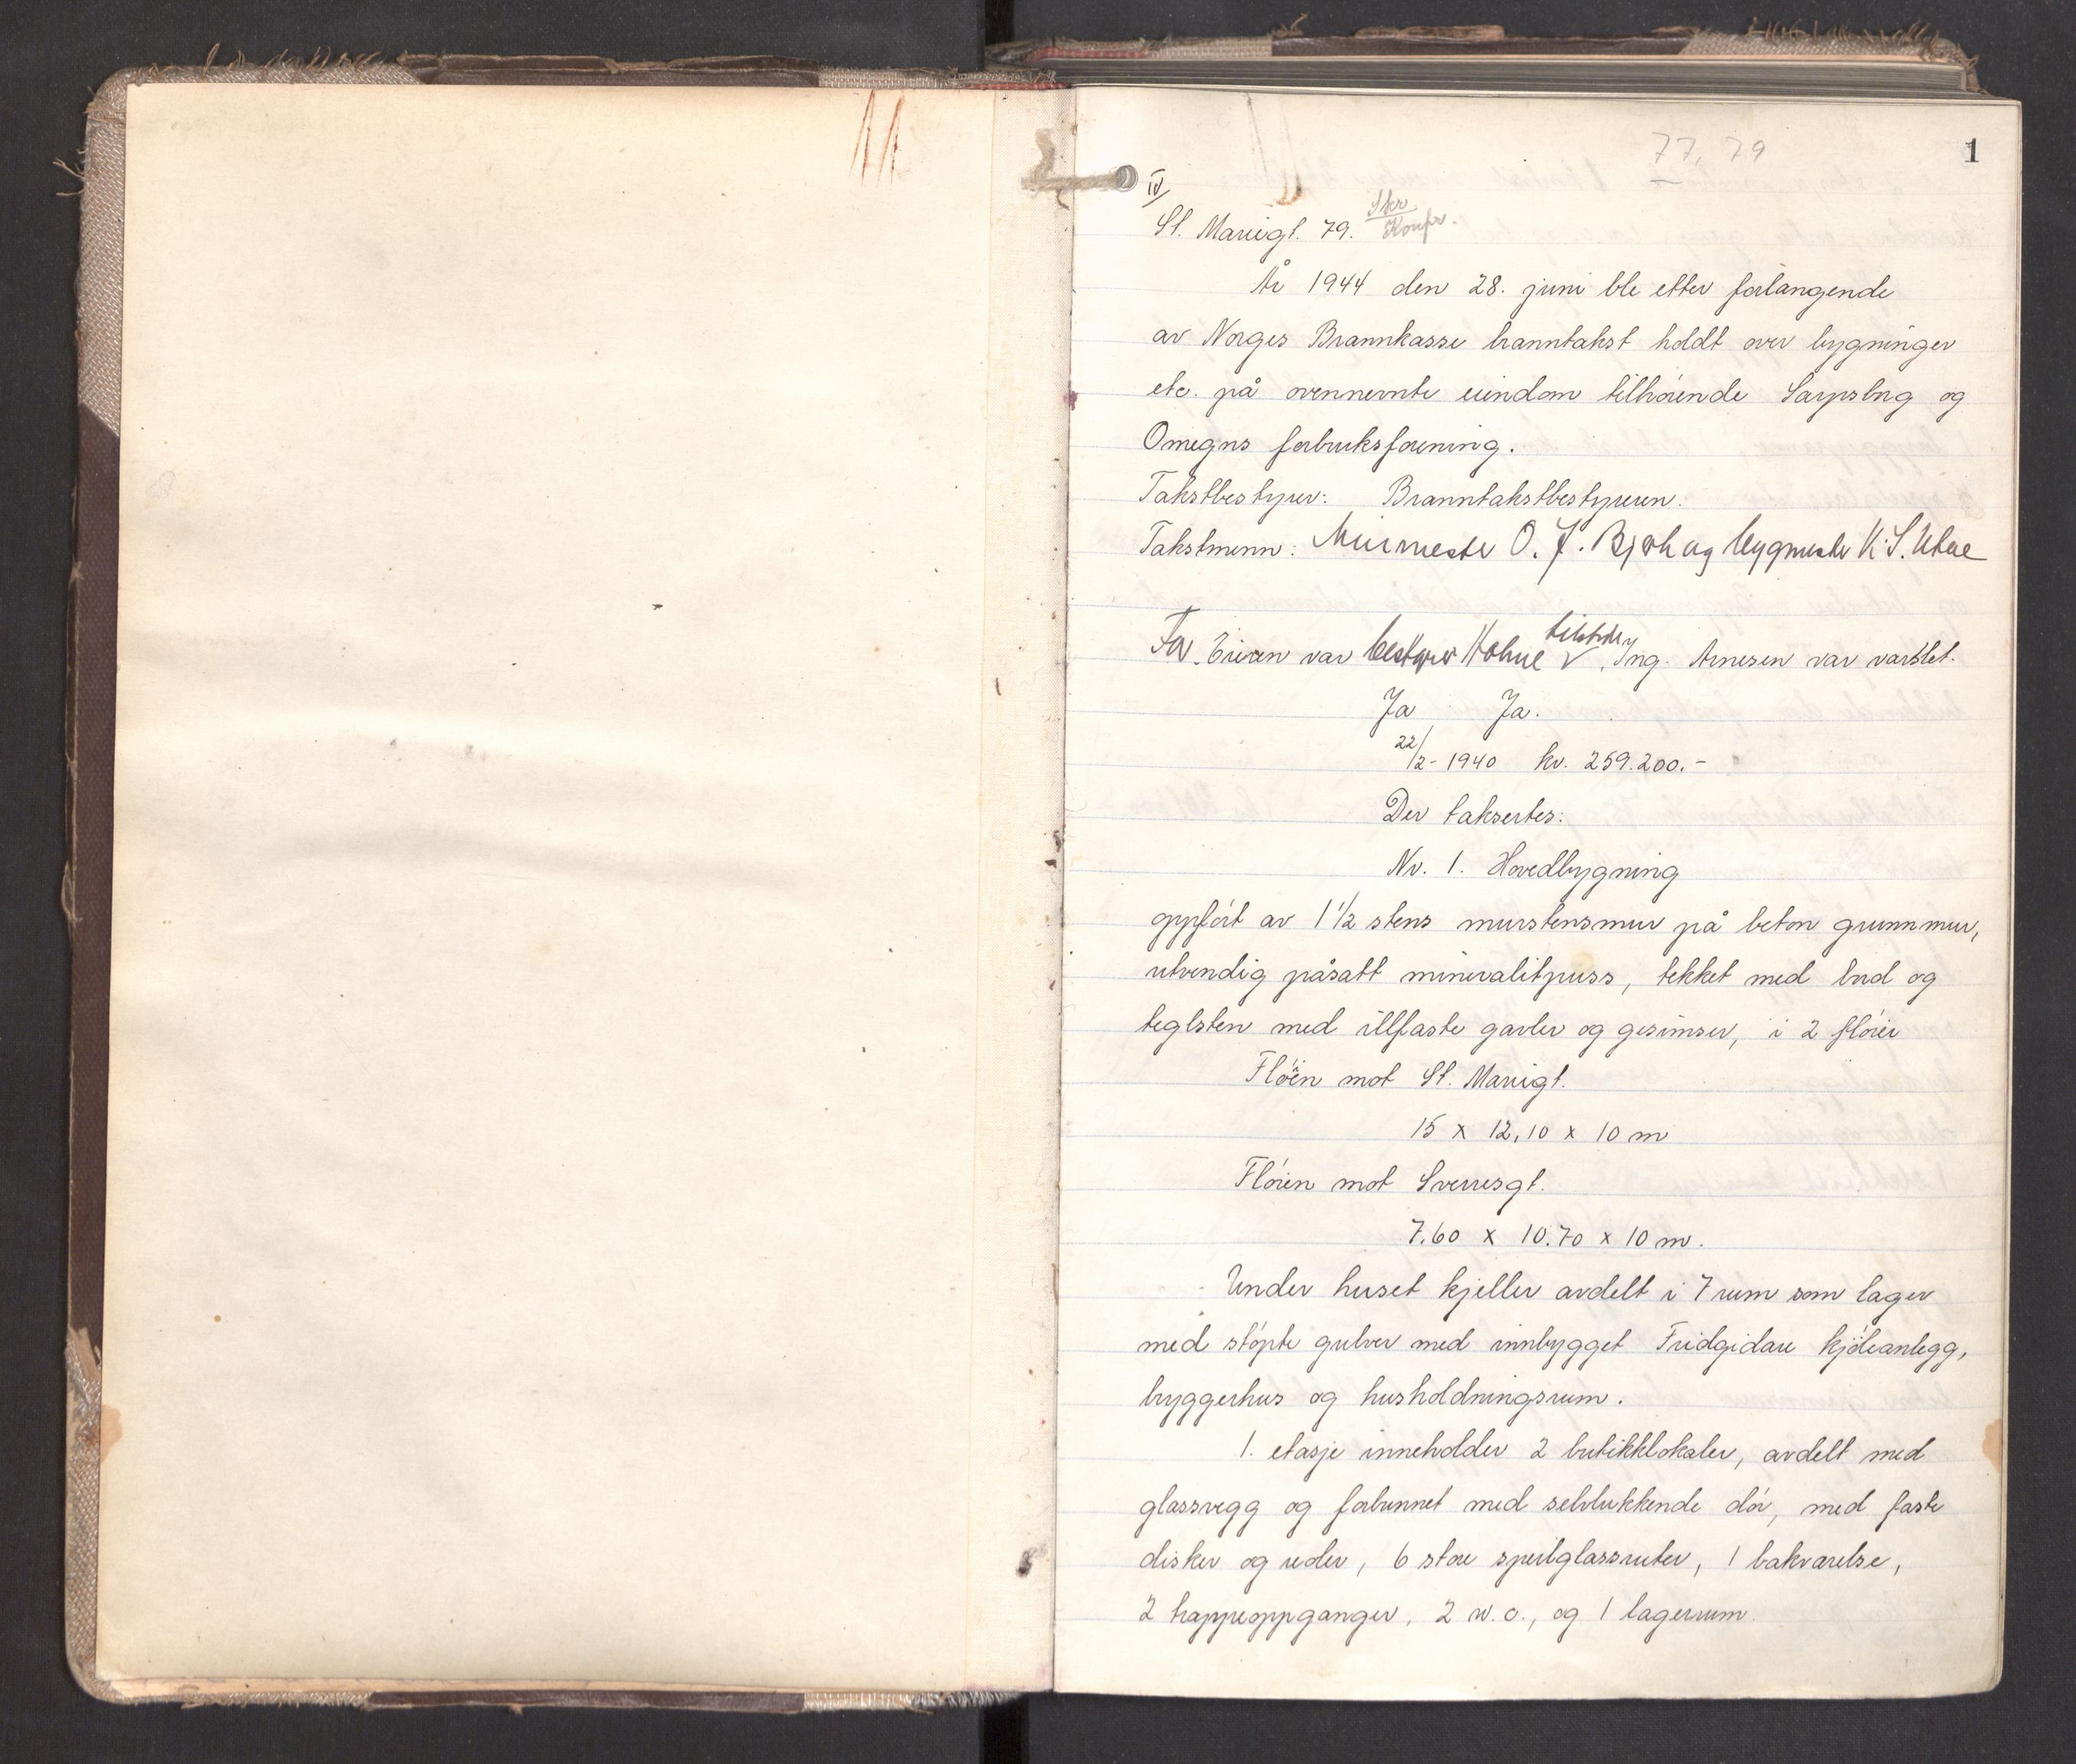 77, 79
1
IV
St. Mariegt. 79. Skr
Konfr.
År 1944 den 28. juni ble etter forlangende
av Norges Brannkasse branntakst holdt over bygninger
etc. på ovennevnte eiendom tilhörende Sarpsborg og
Omegns forbruksforening.
Takstbestyrer: Branntakstbestyreren.
Takstmenn: Murmester O. J. Bjørk og bygmester K. S.
For Eieren var bestyrer Holme tilstede, Ing. Arnesen var varslet.
Ja Ja.
22/2-1940 kr. 259.200.-
Der taksertes:
Nr. 1. Hovedbygning
oppfört av 1 1/2 stens murstensmur på beton grunnmur,
utvendig påsatt mineralitpuss, tekket med bord og
teglsten med illfaste gavler og gesimser, i 2 flöier
Flöien mot St. Mariegt.
15 x 12,10 x 10 m
Flöien mot Sverresgt.
7.60 x 10.70 x 10 m.
Under huset kjeller avdelt i 7 rum som lager
med stöpte gulver med innbygget Fridgidare kjöleanlegg,
bryggerhus og husholdningsrum.
1. etasje inneholder 2 butikklokaler, avdelt med
glassvegg og forbunnet med selvlukkende dör, med faste
disker og reoler, 6 store speilglassruter, 1 bakværelse,
2 trappeoppganger, 2 w.c., og 1 lagerrum.